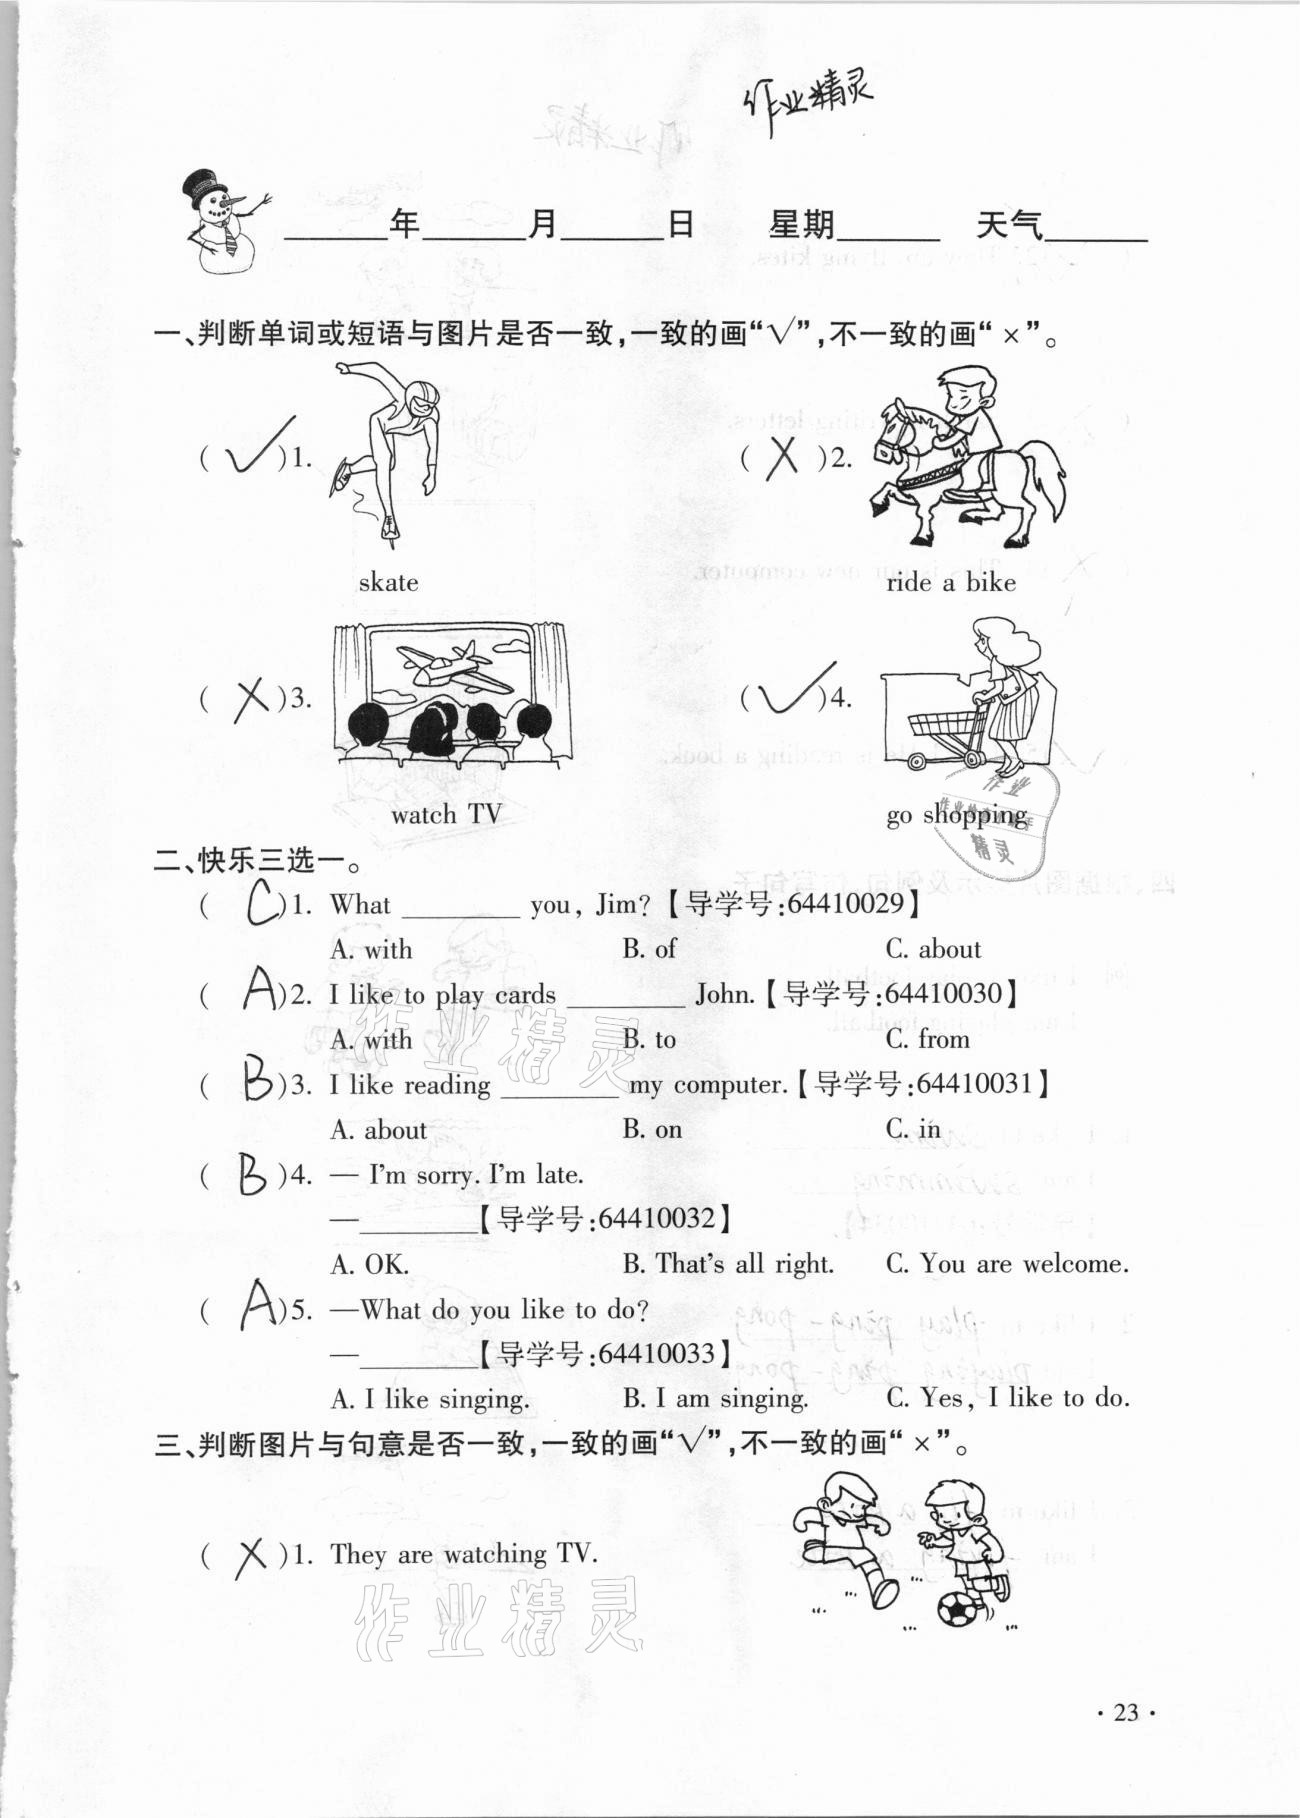 作业精灵
______年______月______日 星期______ 天气______
一、判断单词或短语与图片是否一致，一致的画“√”，不一致的画“×”。
( √ )1.
( X )2.
skate
ride a bike
( X )3.
( √ )4.
watch TV
go shopping
作业
精灵
二、快乐三选一。
( C )1. What ________ you, Jim?【导学号:64410029】
A. with B. of C. about
( A )2. I like to play cards ________ John.【导学号:64410030】
A. with B. to C. from
( B )3. I like reading ________ my computer.【导学号:64410031】
A. about B. on C. in
( B )4. — I'm sorry. I'm late.
—________【导学号:64410032】
A. OK. B. That's all right. C. You are welcome.
( A )5. —What do you like to do?
—________【导学号:64410033】
A. I like singing. B. I am singing. C. Yes, I like to do.
三、判断图片与句意是否一致，一致的画“√”，不一致的画“×”。
( X )1. They are watching TV.
作业精灵
作业精灵
· 23 ·